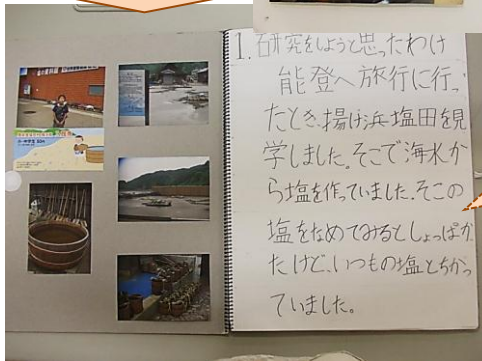 1. 研究をしようと思ったわけ
能登へ旅行に行っ
たとき、揚げ浜塩田を見
学しました。そこで海水か
ら塩を作っていました。そこの
塩をなめてみるとしょっぱか
たけど、いつもの塩とちがっ
ていました。